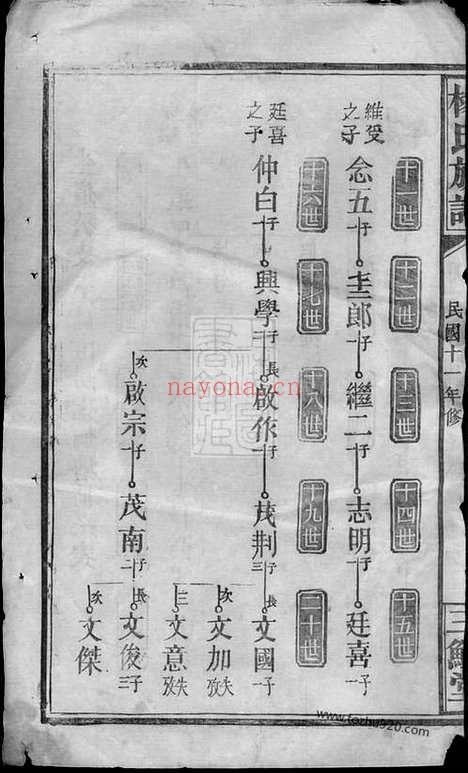 楊氏族譜
民國十一年修
三鱣堂
十一世
十二世
十三世
十四世
十五世
維受之子
念五 一子
一子
繼二 一子
志明 一子
廷喜 一子
十六世
十七世
十八世
十九世
二十世
廷喜之子
仲白 一子
興學 二子
長 啟作 一子
茂荆 三子
長 文國 一子
次 文加 失攷
三 文意 失攷
次 啟宗 一子
茂南 二子
長 文俊 三子
次 文傑
nayona.cn
www.tcxhu920.com